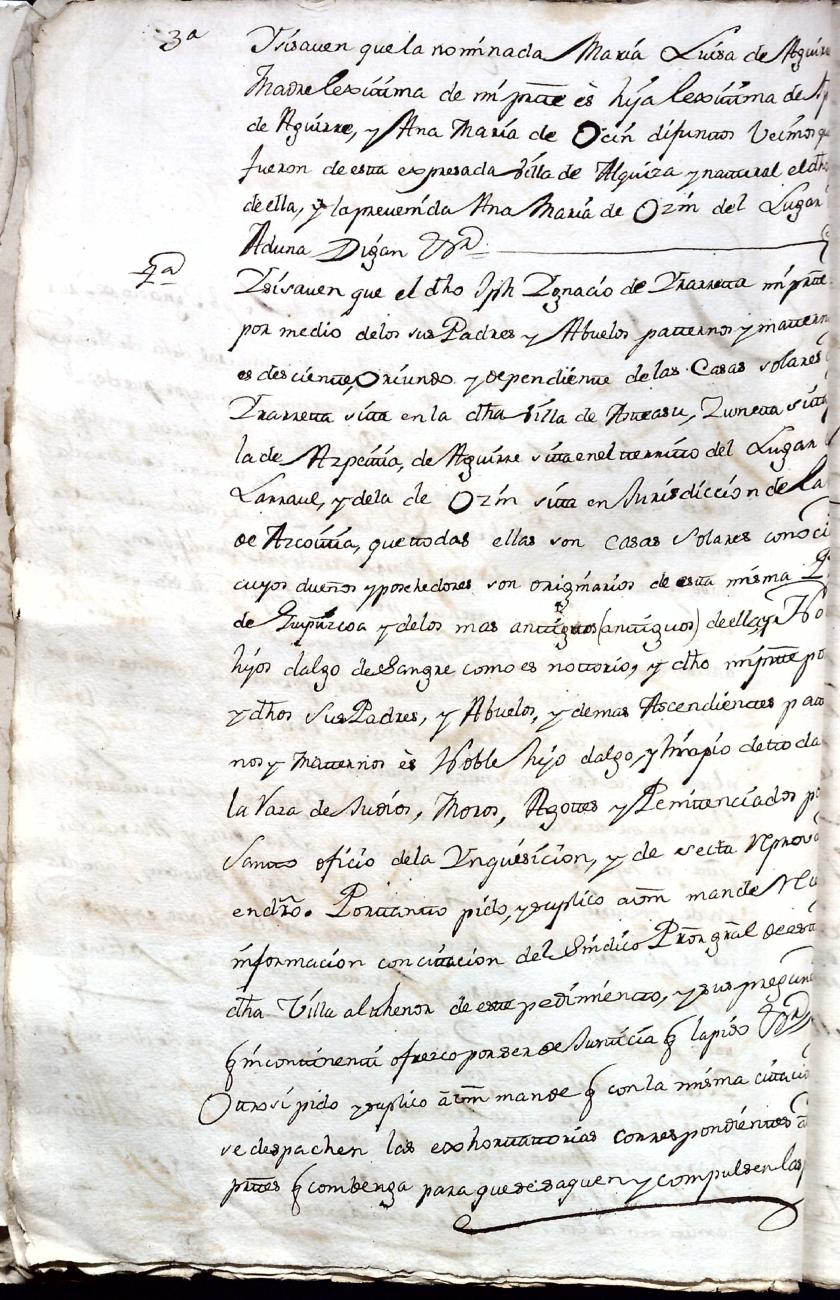 3ª Ysisaven que la nominada María Luisa de Aguirre
Madre lexittima de mi prtte ès hija lexittima de
de Aguirre, y Ana María de Ocin difunttos Vecinos q
fueron de estta expresada Villa de Alquiza y nattural el dho
de ella, y la prevenida Ana María de Ozin del Lugar
Aduna Digan &ra
4ª Ysisaven que el dho Jph Ygnacio de Yrarretta mi prtte
por medio de los sus Padres y Abuelos patternos y matterno
es desciente, Oriundo y dependiente de las Casas solares
Yrarretta sitta en la dha Villa de Asteasu, Zunetta sitta
la de Azpeittia, de Aguirre sitta en el territtto del Lugar
Larraul, y dela de Ozin sitta en Jurisdiccion de la
de Azcoittia, que ttodas ellas son Casas Solares conoci
cuyos dueños y poshedores son originarios de estta misma
de Guipuzcoa y delos mas anttiguos (anttiguos) de ella, y No
hijos dalgo de Sangre como es nottorio, y dho mi prtte po
y dhos Sus Padres, y Abuelos, y demas Ascendientes patt
nos y Matternos ès Noble hijo dalgo, y limpio de ttoda
la Raza de Judios, Moros, Agottes y Penittenciados po
Santto oficio dela Ynquisicion, y de secta reprova
en dro. Porttantto pido, y suplico a Vm mande reci
informacion con cittacion del Sindico Pror gral de estta
dha Villa al thenor de estte pedimientto, y sus pregun
q incontinentti ofrezco por ser de Justticia q la pido &ra
Ottrosi pido y suplico à Vm mande q con la misma cittacio
se despachen las exhorttattorias correspondienttes à
prttes q combenga para que se saquen y compulsen las